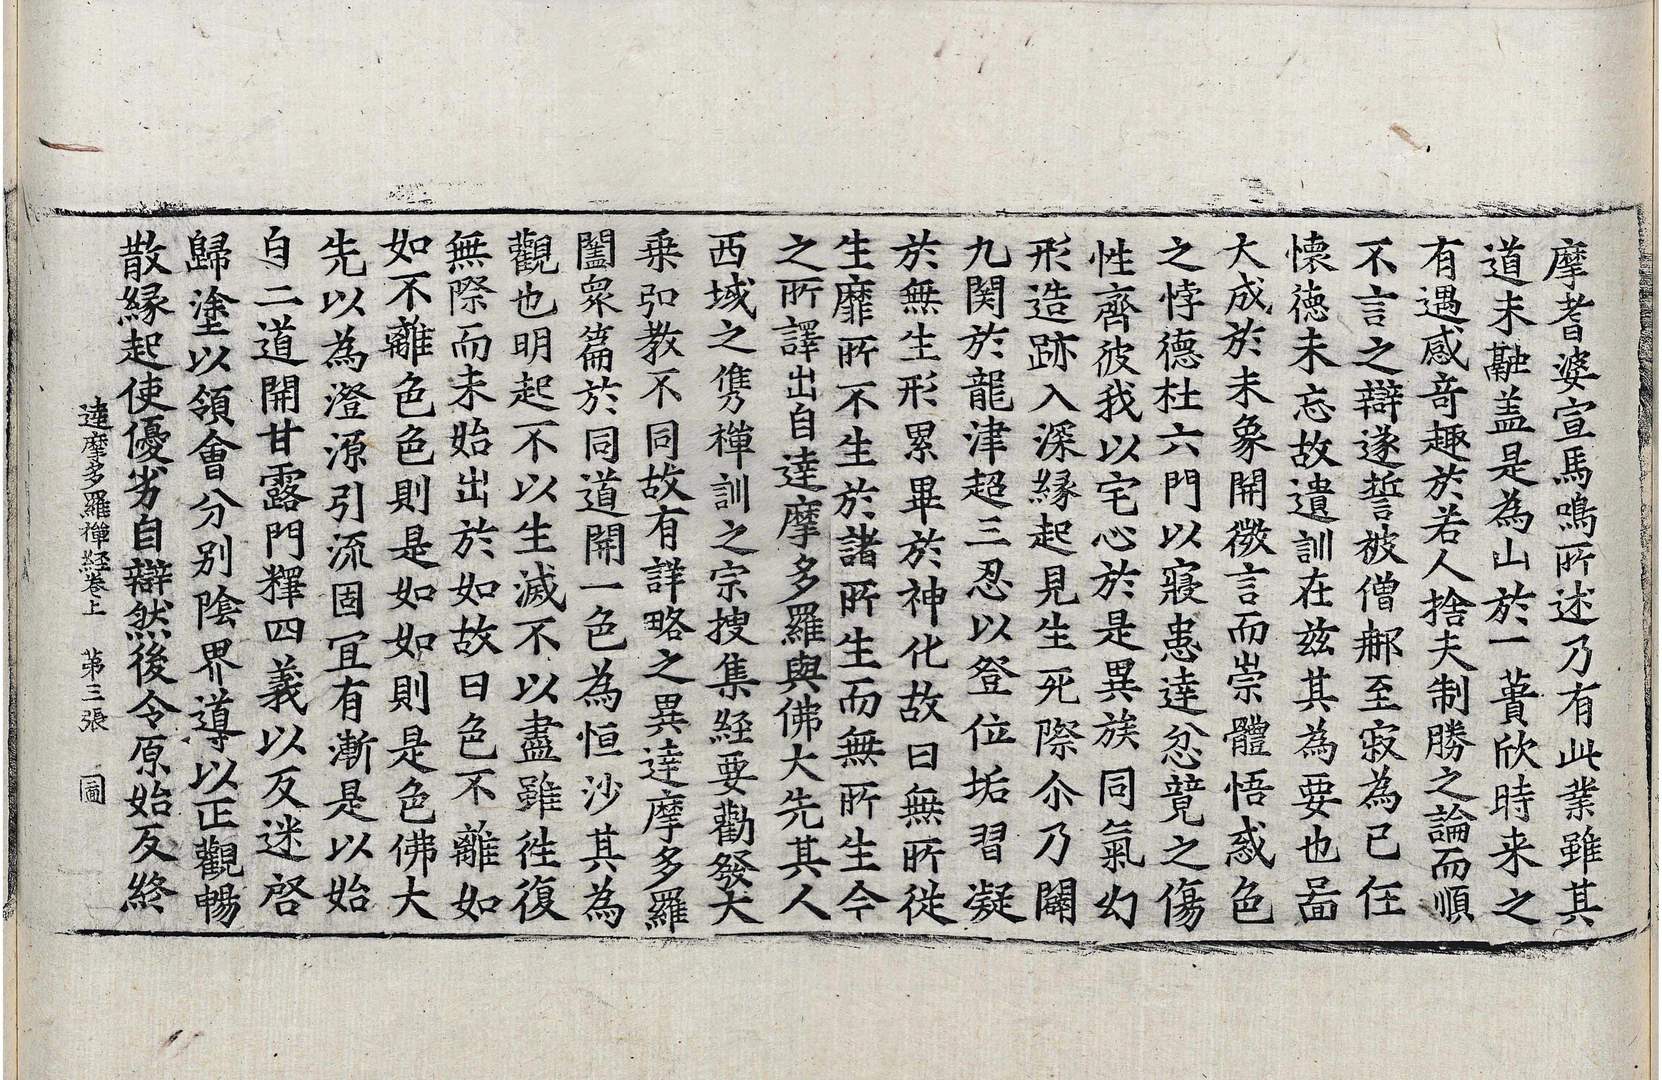 摩耆婆宣馬鳴所述乃有此業雖其
道未融盖是為山於一蕢欣時来之
有遇感竒趣於若人捨夫制勝之論而順
不言之辯遂誓被僧那至寂為已任
懷德未忘故遺訓在兹其為要也啚
大成於未象開微言而崇體悟惑色
之悖德杜六門以寢患達忿競之傷
性齊彼我以宅心於是異族同氣幻
形造跡入深縁起見生死際尒乃闢
九関於龍津超三忍以登位垢習凝
於無生形累畢於神化故曰無所従
生靡所不生於諸所生而無所生今
之所譯出自達摩多羅與佛大先其人
西域之儁禪訓之宗搜集経要勸發大
乗弘教不同故有詳略之異達摩多羅
闔衆篇於同道開一色為恒沙其為
觀也明起不以生滅不以盡雖徃復
無際而未始出於如故曰色不離如
如不離色色則是如如則是色佛大
先以為澄源引流固冝有漸是以始
自二道開甘露門釋四義以反迷啓
歸塗以領會分别陰界導以正觀暢
散縁起使優劣自辯然後令原始反終
達摩多羅禪経卷上 第三張 圖